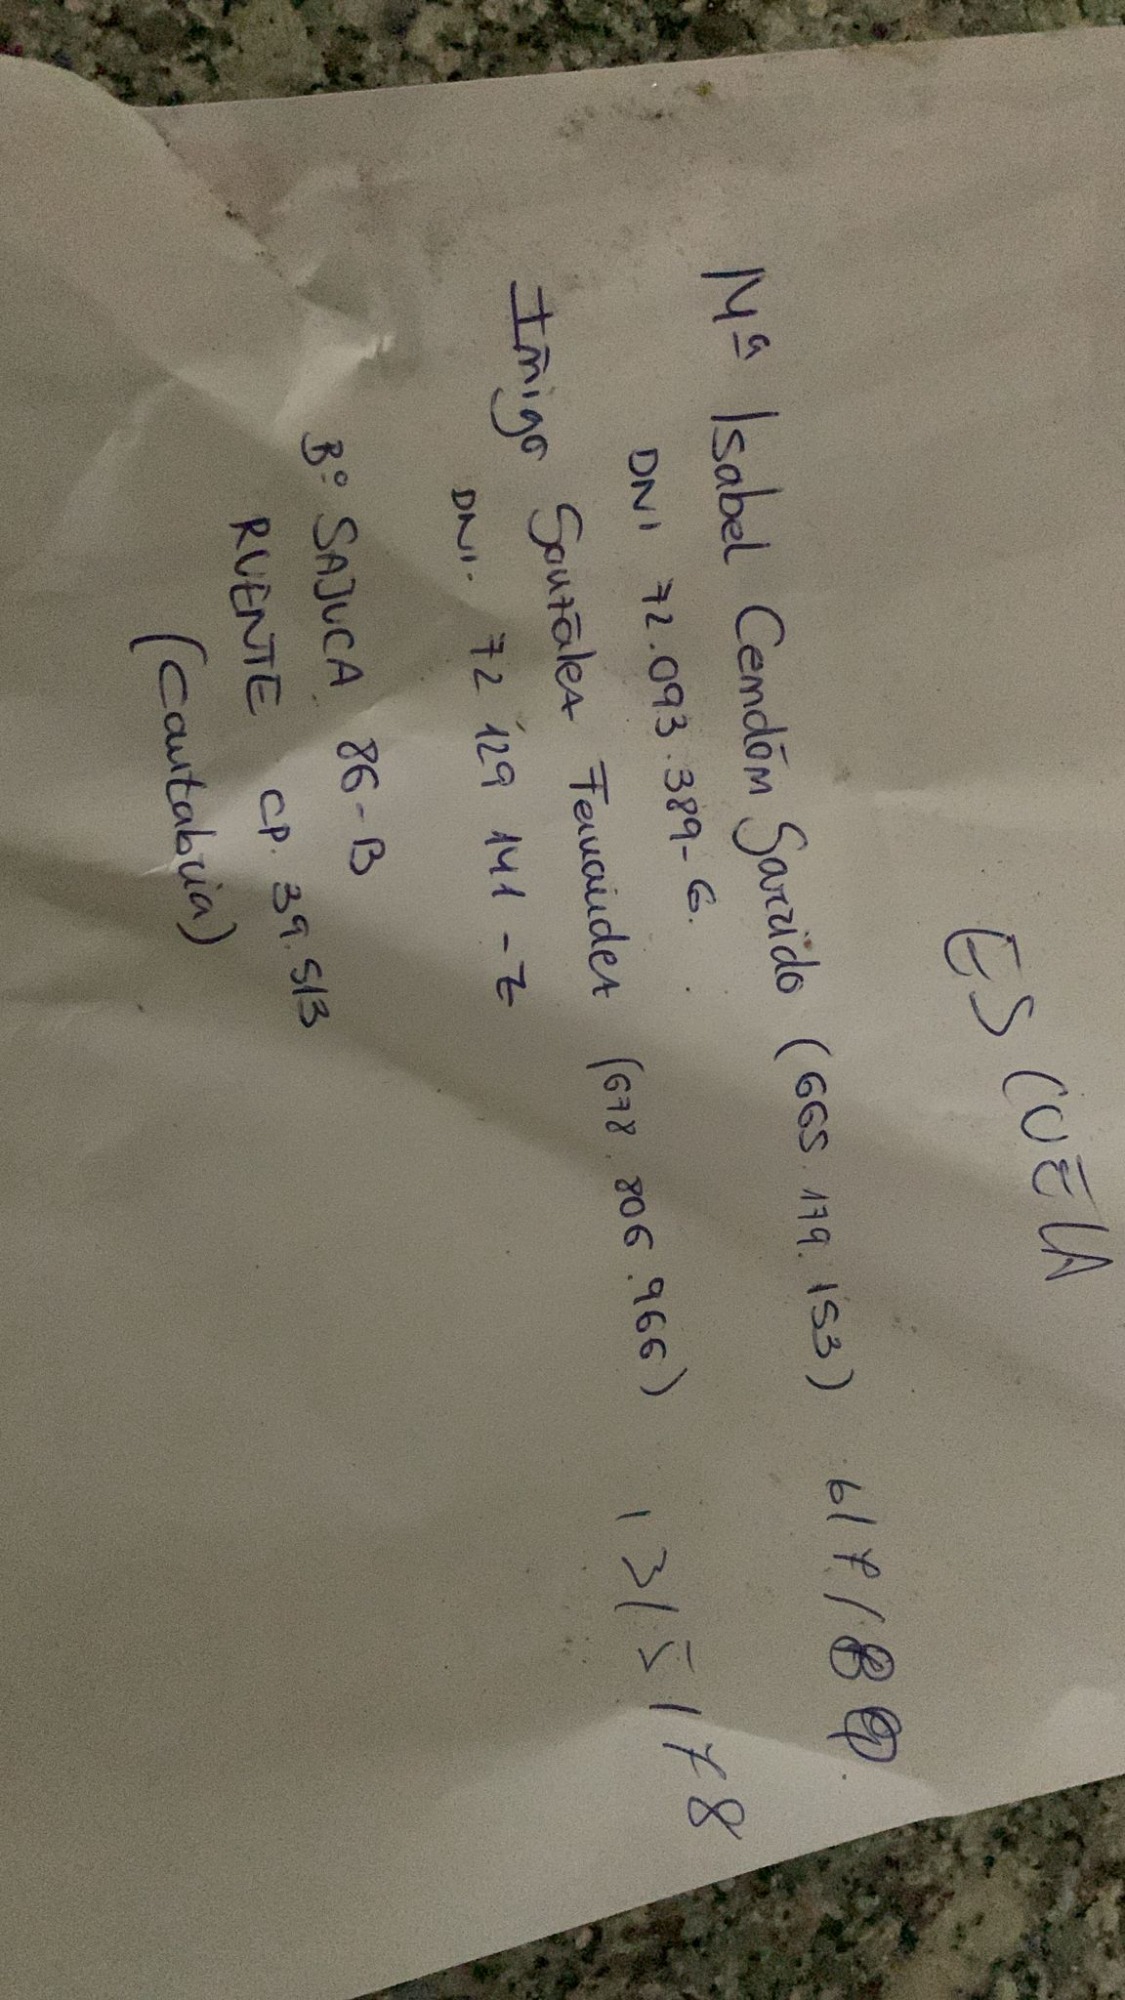 ESCUELA
Mª Isabel Cendón Garrido (665.179.153) 6/7/80
DNI 72.093.389-G.
Iñigo González Fernández (678.806.966) 13/5/78
DNI. 72 129 141-Z
Bº SAJUCA 86-B
RUENTE CP. 39.513
(Cantabria)